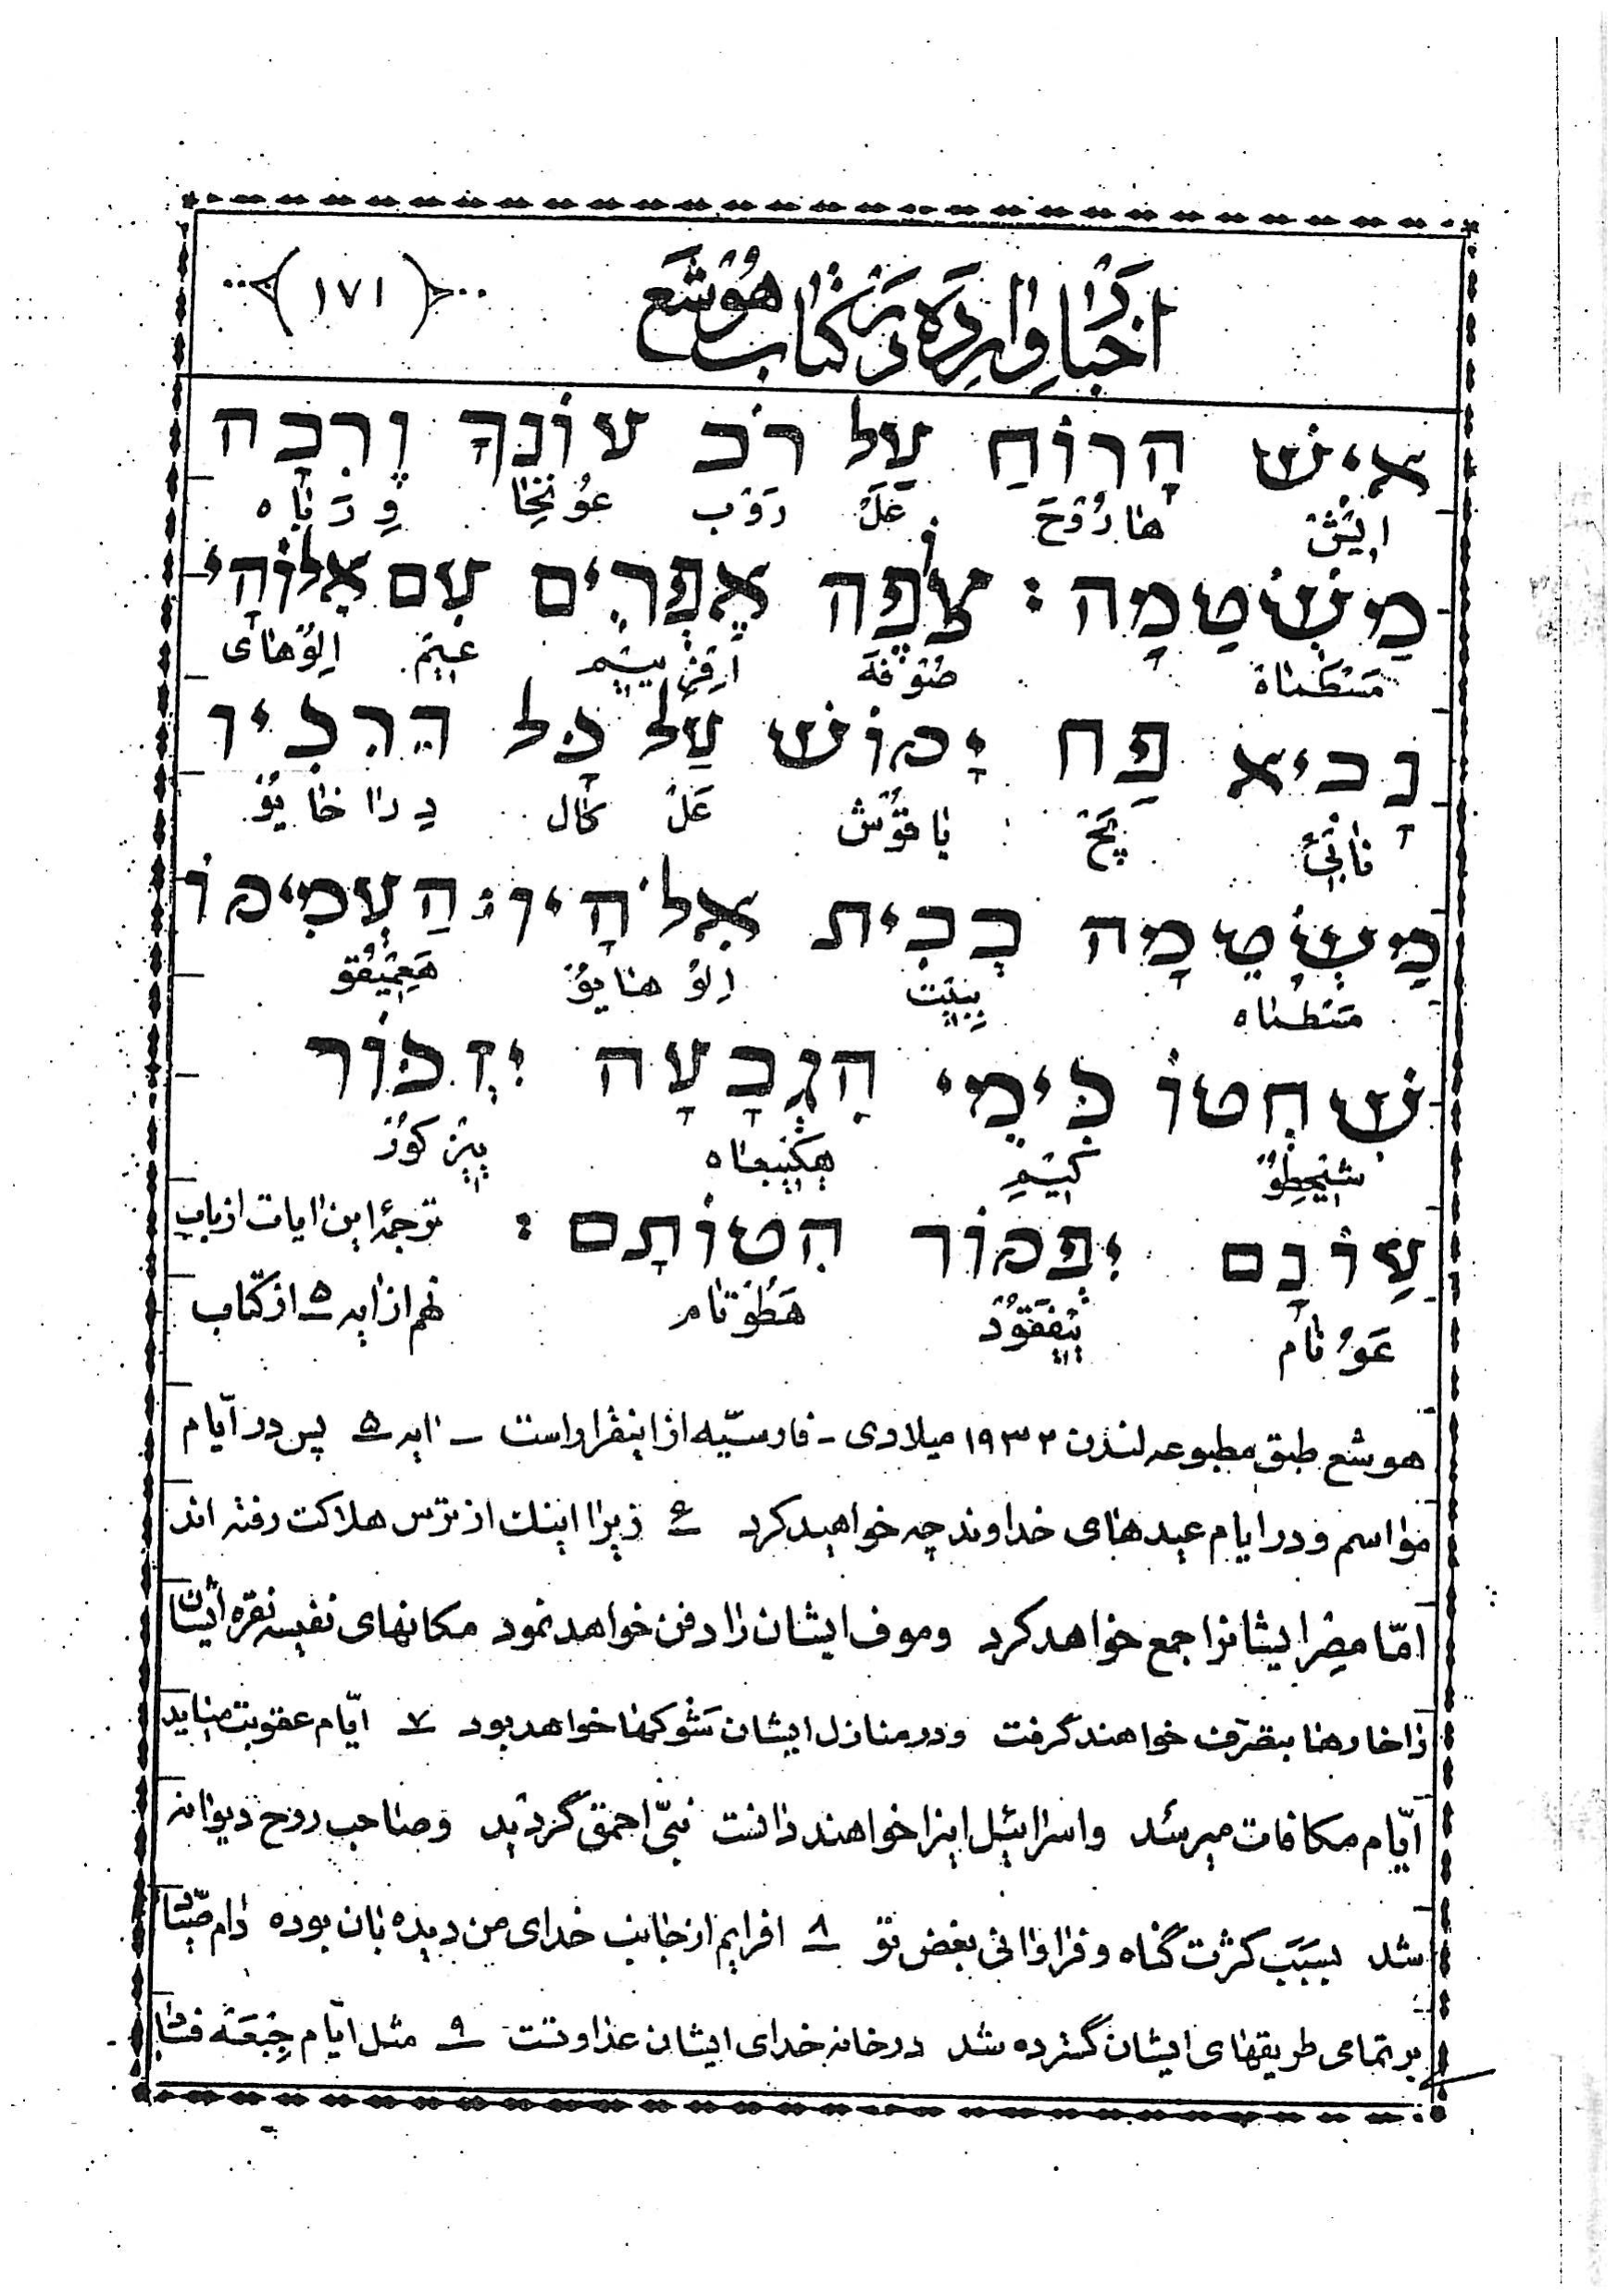 اخبار وارده در کتاب هوشع (۱۷۱)
אִישׁ הָרוּחַ עַל רֹב עוֹנְךָ וְרִבָה
ایش هاروح عل روب عونخا و رباه
מַשְׂטֵמָה: צֹפֶה אֶפְרַיִם עִם אֱלוֹהָי
مسطماة صوفه افریم عیم الوهای
נָבִיא פַּח יָקוֹשׁ עַל כָּל דְּרָכָיו
نابیء پخ یاقوش عل کال دراخایو
מַשְׂטֵמָה בְּבֵית אֱלֹהָיו: הֶעְמִיקוּ
مسطماه ببیت الوهایو هعمیقو
שִׁחֵטוּ כִּימֵי הַגִּבְעָה יִזְכּוֹר
شیحطو کییم هکیبعاه ییزکور
עֲוֹנָם יִפְקוֹד חַטּוֹתָם: ترجمهٔ این ایات از باب
عونام ییفقود حطوتام نهم از ایه ۵ از کتاب
هوشع طبق مطبوعه لندن ۱۹۳۲ میلادی - فارسیّه از اینقرار است - ایه ۵ پس در ایّام
مواسم و در ایام عیدهای خداوند چه خواهید کرد ۶ زیرا اینک از ترس هلاکت رفته اند
امّا مصر ایشانرا جمع خواهد کرد وموف ایشان را دفن خواهد نمود مکانهای نفیسه نقره ایشان
را خارها بتصرّف خواهند گرفت و در منازل ایشان شوکها خواهد بود ۷ ایّام عقوبت میاید
ایّام مکافات میرسد واسرائیل اینرا خواهند دانست نبّی احمق گردید وصاحب روح دیوانه
شد بسبب کثرت گناه و فراوانی بغض تو ۸ افرایم از جانب خدای من دیده بان بوده دام صیّاد
بر تمامی طریقهای ایشان گسترده شد در خانه خدای ایشان عداوتست ۹ مثل ایّام جِبْعَه فساد